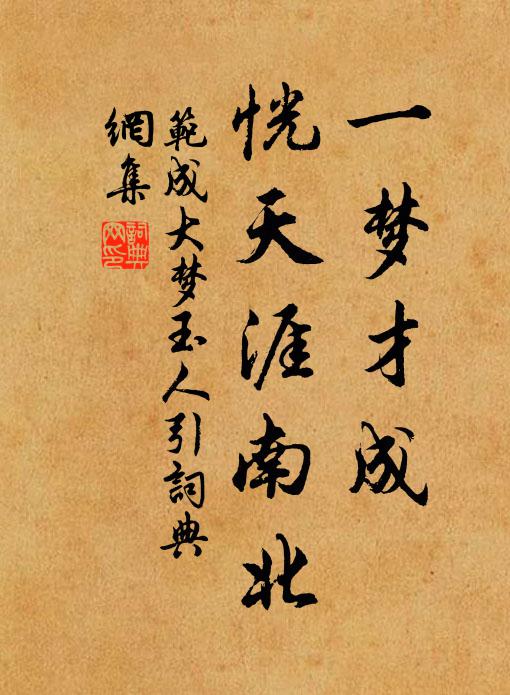 一梦才成
恍天涯南北
範成大梦玉人引詞典
網集
詞典
网印